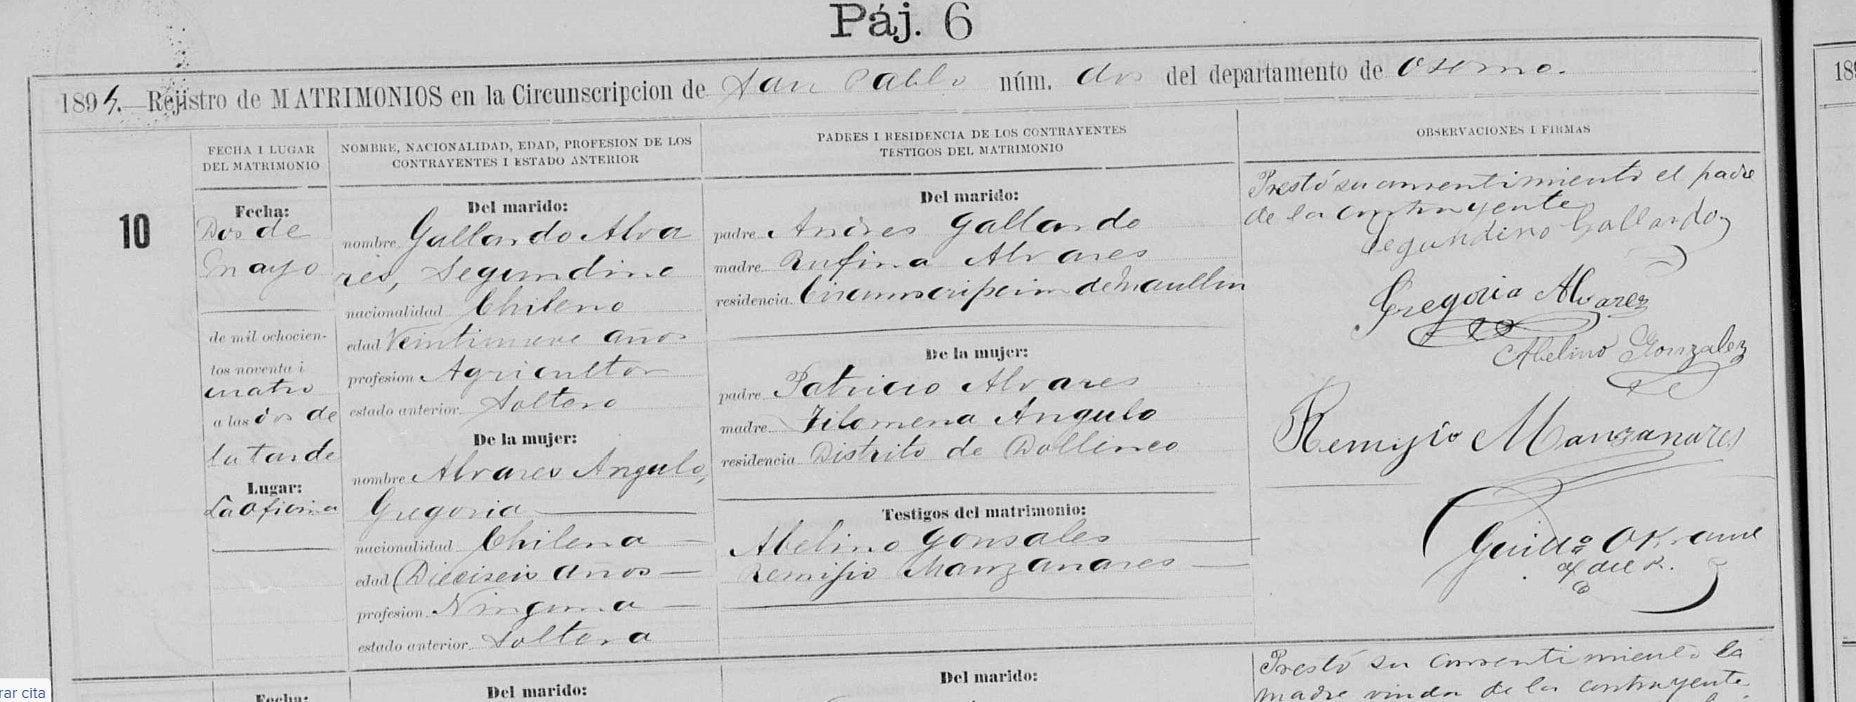 Páj. 6
1894.—Rejistro de MATRIMONIOS en la Circunscripcion de San Pablo núm. dos del departamento de Osorno.
189
FECHA I LUGAR
DEL MATRIMONIO
NOMBRE, NACIONALIDAD, EDAD, PROFESION DE LOS
CONTRAYENTES I ESTADO ANTERIOR
PADRES I RESIDENCIA DE LOS CONTRAYENTES
TESTIGOS DEL MATRIMONIO
OBSERVACIONES I FIRMAS
10
Fecha:
Dos de
Mayo
de mil ochocien-
tos noventa i
cuatro
a las dos de
la tarde
Lugar:
La Oficina
Del marido:
nombre Gallardo Alva
res, Segundino
nacionalidad Chileno
edad Veintinueve años
profesion Agricultor
estado anterior Soltero
De la mujer:
nombre Alvares Angulo,
Gregoria
nacionalidad Chilena
edad Dieciseis años
profesion Ninguna
estado anterior Soltera
Del marido:
padre Andres Gallardo
madre Rufina Alvares
residencia Circunscripcion de Maullin
De la mujer:
padre Patricio Alvares
madre Filomena Angulo
residencia Distrito de Dollinco
Testigos del matrimonio:
Abelino Gonsales
Remijio Manzanares
Prestó su consentimiento el padre
de la contrayente
Segundino Gallardo
Gregoria Alvarez
Abelino Gonzalez
Remijio Manzanares
Guido
Fecha:
Del marido:
Del marido:
Prestó su consentimiento la
madre viuda de la contrayente
rar cita